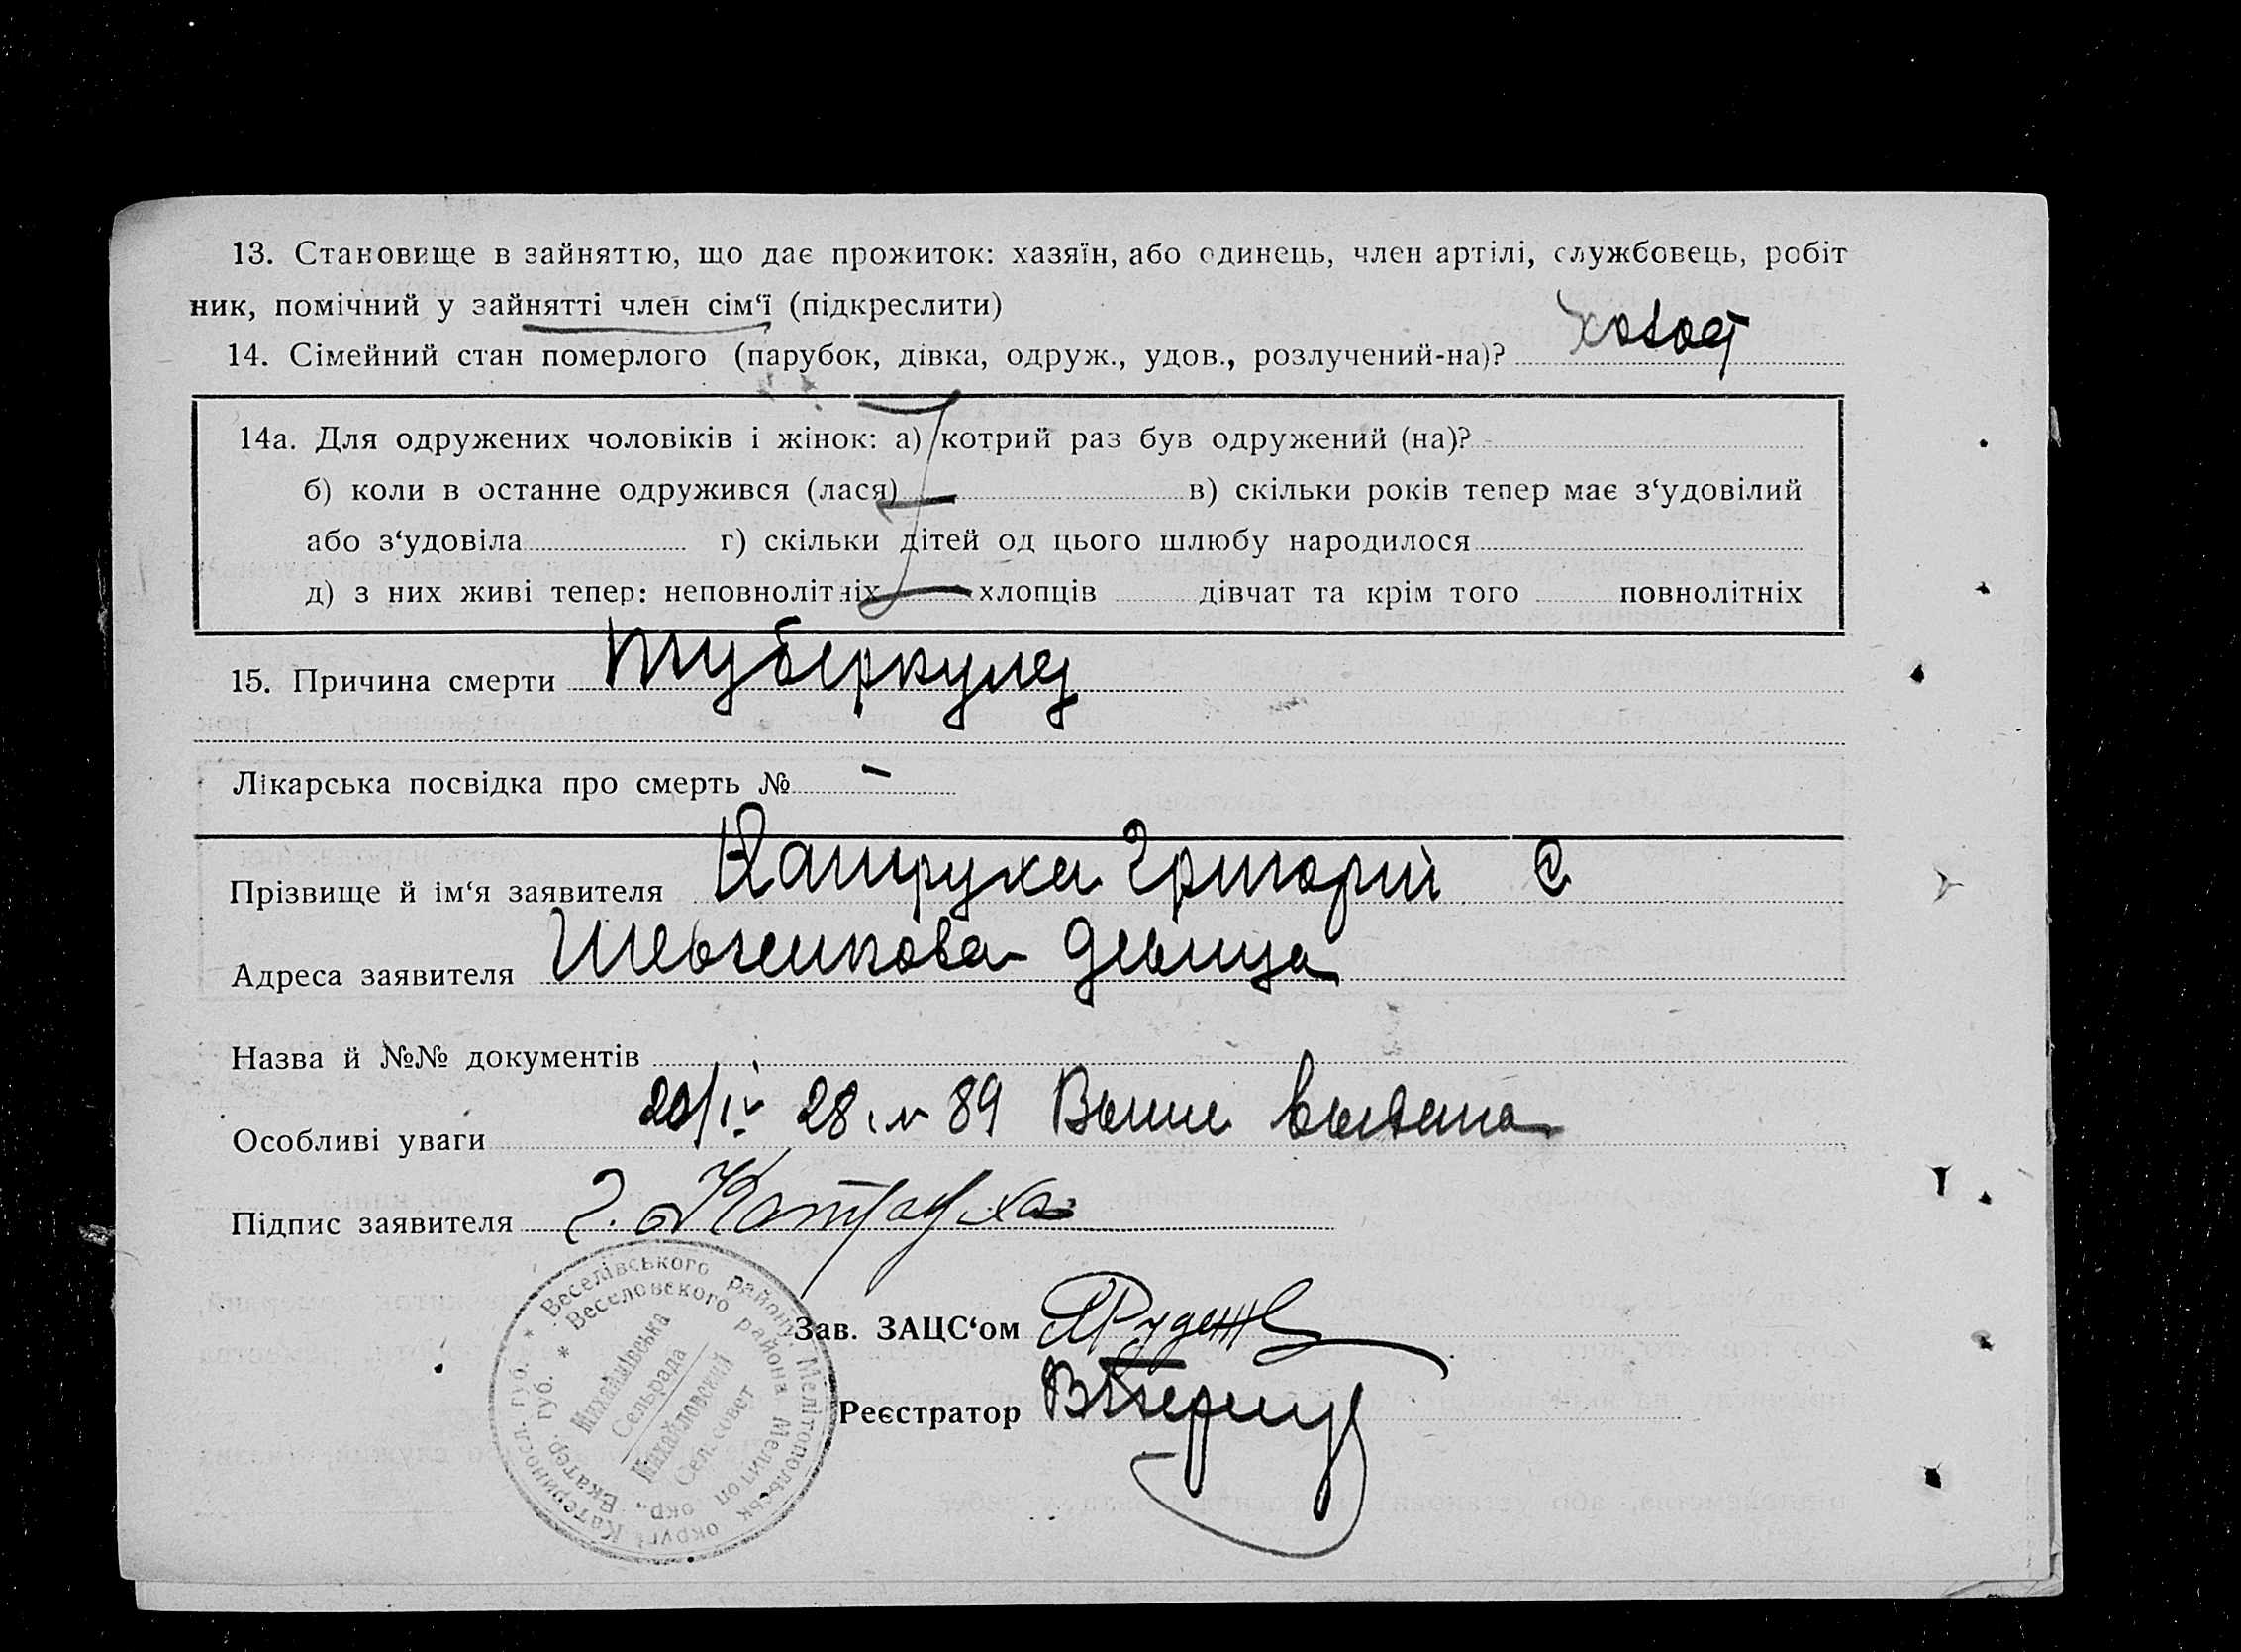 13. Становище в зайняттю, що дає прожиток: хазяїн, або одинець, член артілі, службовець, робіт
ник, помічний у зайнятті член сім‘ї (підкреслити)
14. Сімейний стан померлого (парубок, дівка, одруж., удов., розлучений-на)? холост
14а. Для одружених чоловіків і жінок: а) котрий раз був одружений (на)?
б) коли в останне одружився (лася) — в) скільки років тепер має з‘удовілий
або з‘удовіла г) скільки дітей од цього шлюбу народилося
д) з них живі тепер: неповнолітніх — хлопців дівчат та крім того повнолітніх
15. Причина смерти туберкулез
Лікарська посвідка про смерть № —
Прізвище й ім‘я заявителя Катруха Григорий С
Адреса заявителя
Назва й №№ документів
Особливі уваги 20/IV 28 № 89
Підпис заявителя Г. Катруха
Зав. ЗАЦС‘ом
Реєстратор
* Веселівського району, Мелітопольськ округ Катериносл. губ.
* Веселовского района Мелитоп окр., Екатер. губ.
Михайлівська
Сельрада
Михайловский
Сел. совет